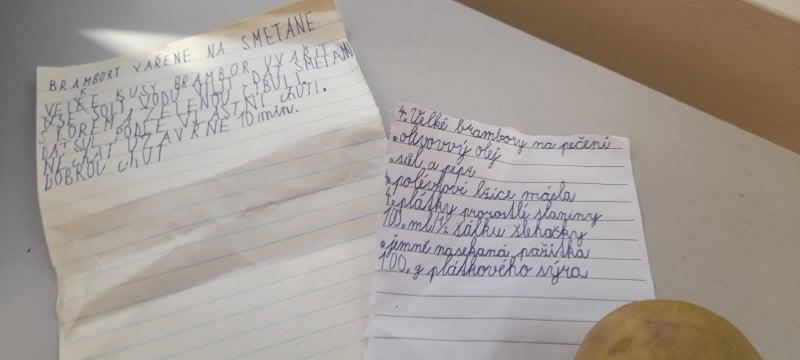 BRAMBORY VAŘENÉ NA SMETANĚ
VELKÉ KUSY BRAMBOR UVAŘIT
VSE SOLI, VODU SLIJ DAT SMETANU
S KOREM A ZELENOU CIBULÍ.
DÁT SŮL PODLE VLASTNÍ CHUTI.
NECHAT UZAVŘNE 10 min.
DOBROU CHUŤ
4. Velké brambory na pečení
. olivovvý olej
. sůl a pepř
4. polévkové lžíce másla
4. plátky prorostlé slaniny
100. ml 1/2 šálku šlehačky
. jemně nasekaná pažitka
100. g plátkového sýra